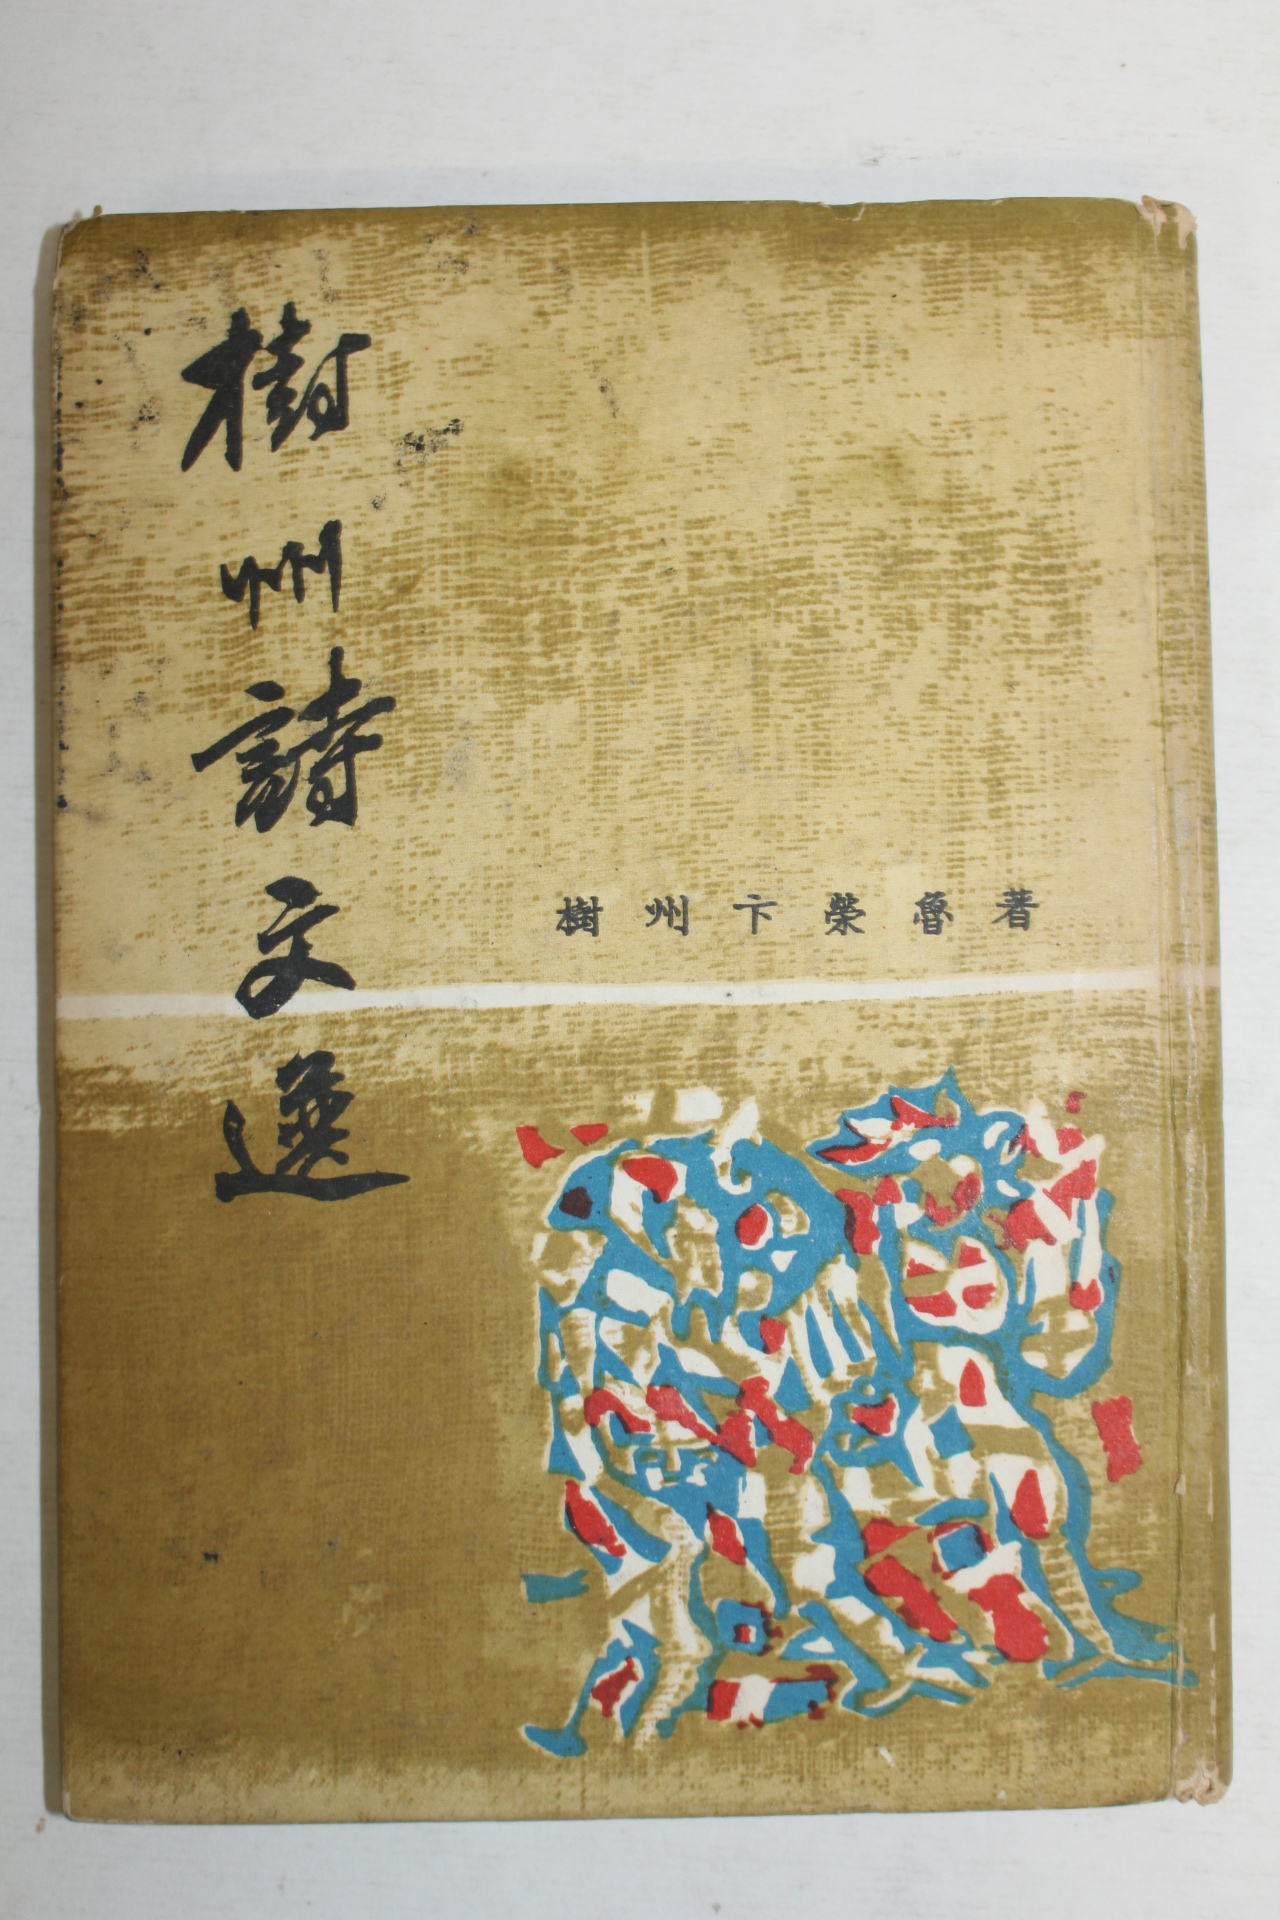 樹州詩文選
樹州卞榮魯著